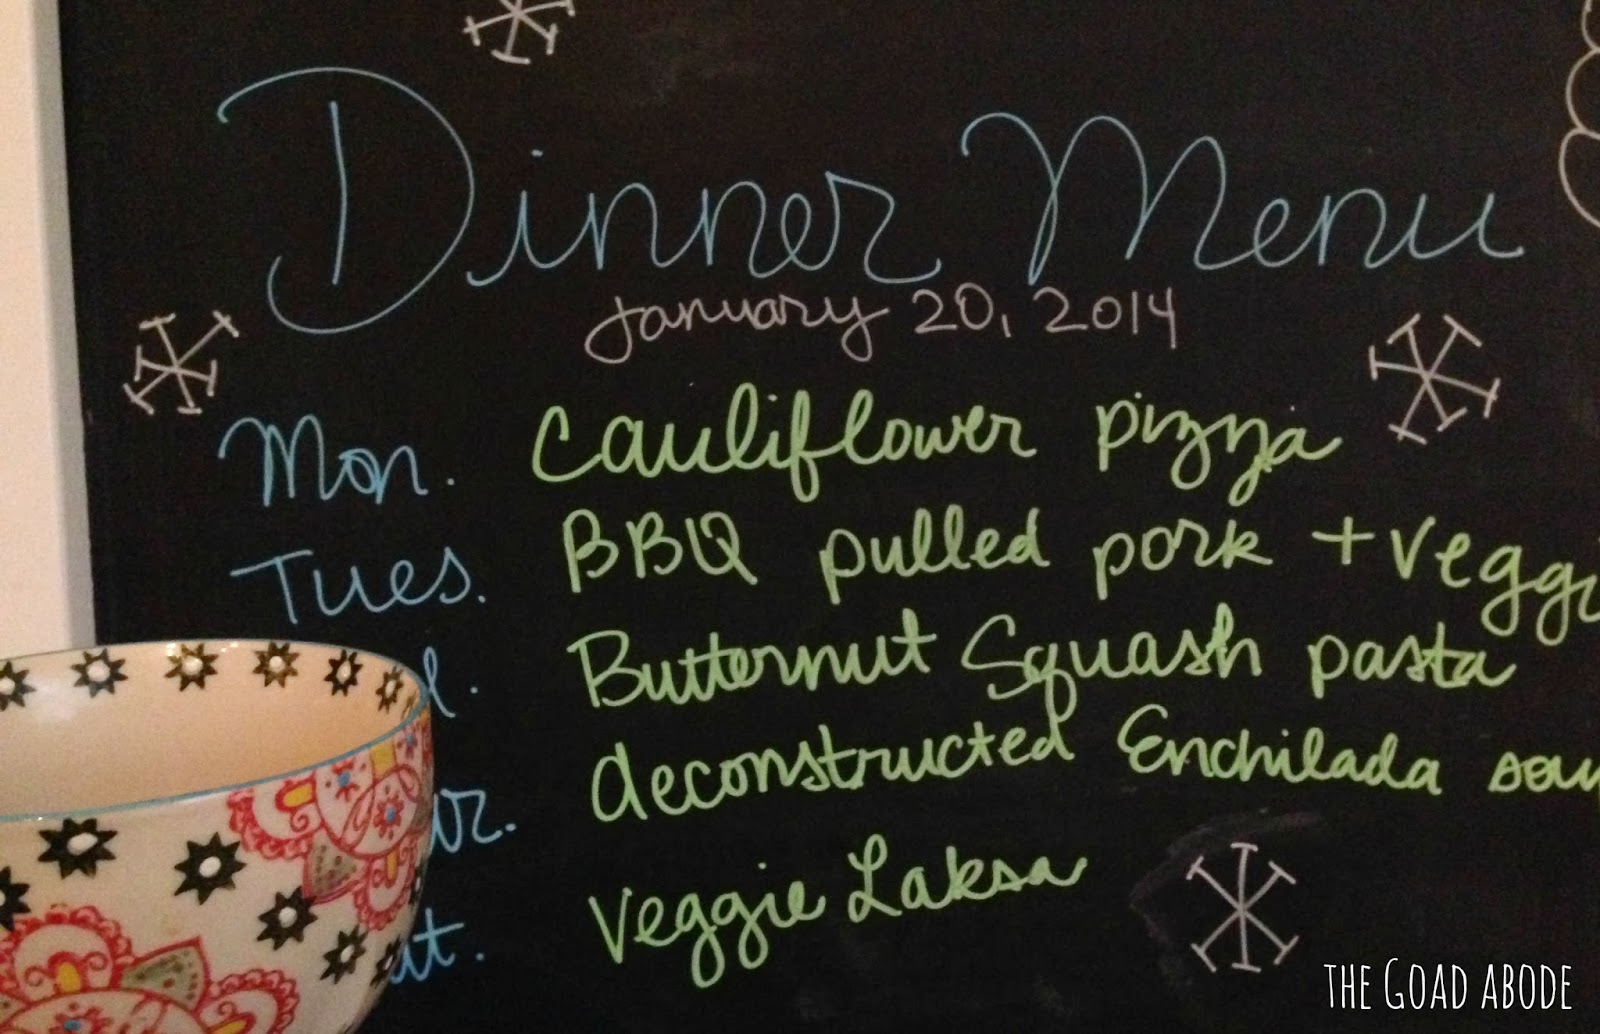 Dinner Menu
January 20, 2014
Mon. Cauliflower pizza
Tues. BBQ pulled pork + veggi
d. Butternut Squash pasta
ur. deconstructed Enchilada sou
at. Veggie Laksa
THE GOAD ABODE